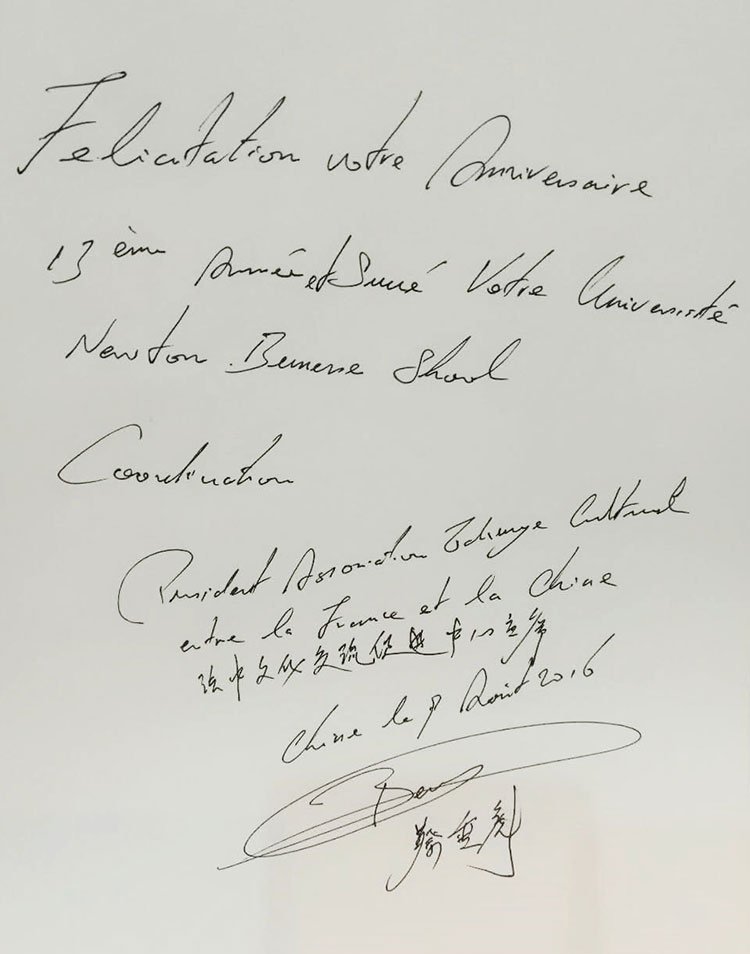 Felicitation votre Anniversaire
13ème Année et Votre Université
Newton
Coordination
President Association Echange Culturel
entre la France et la Chine
法中文化交流促进中心主席
Chine le Août 2016